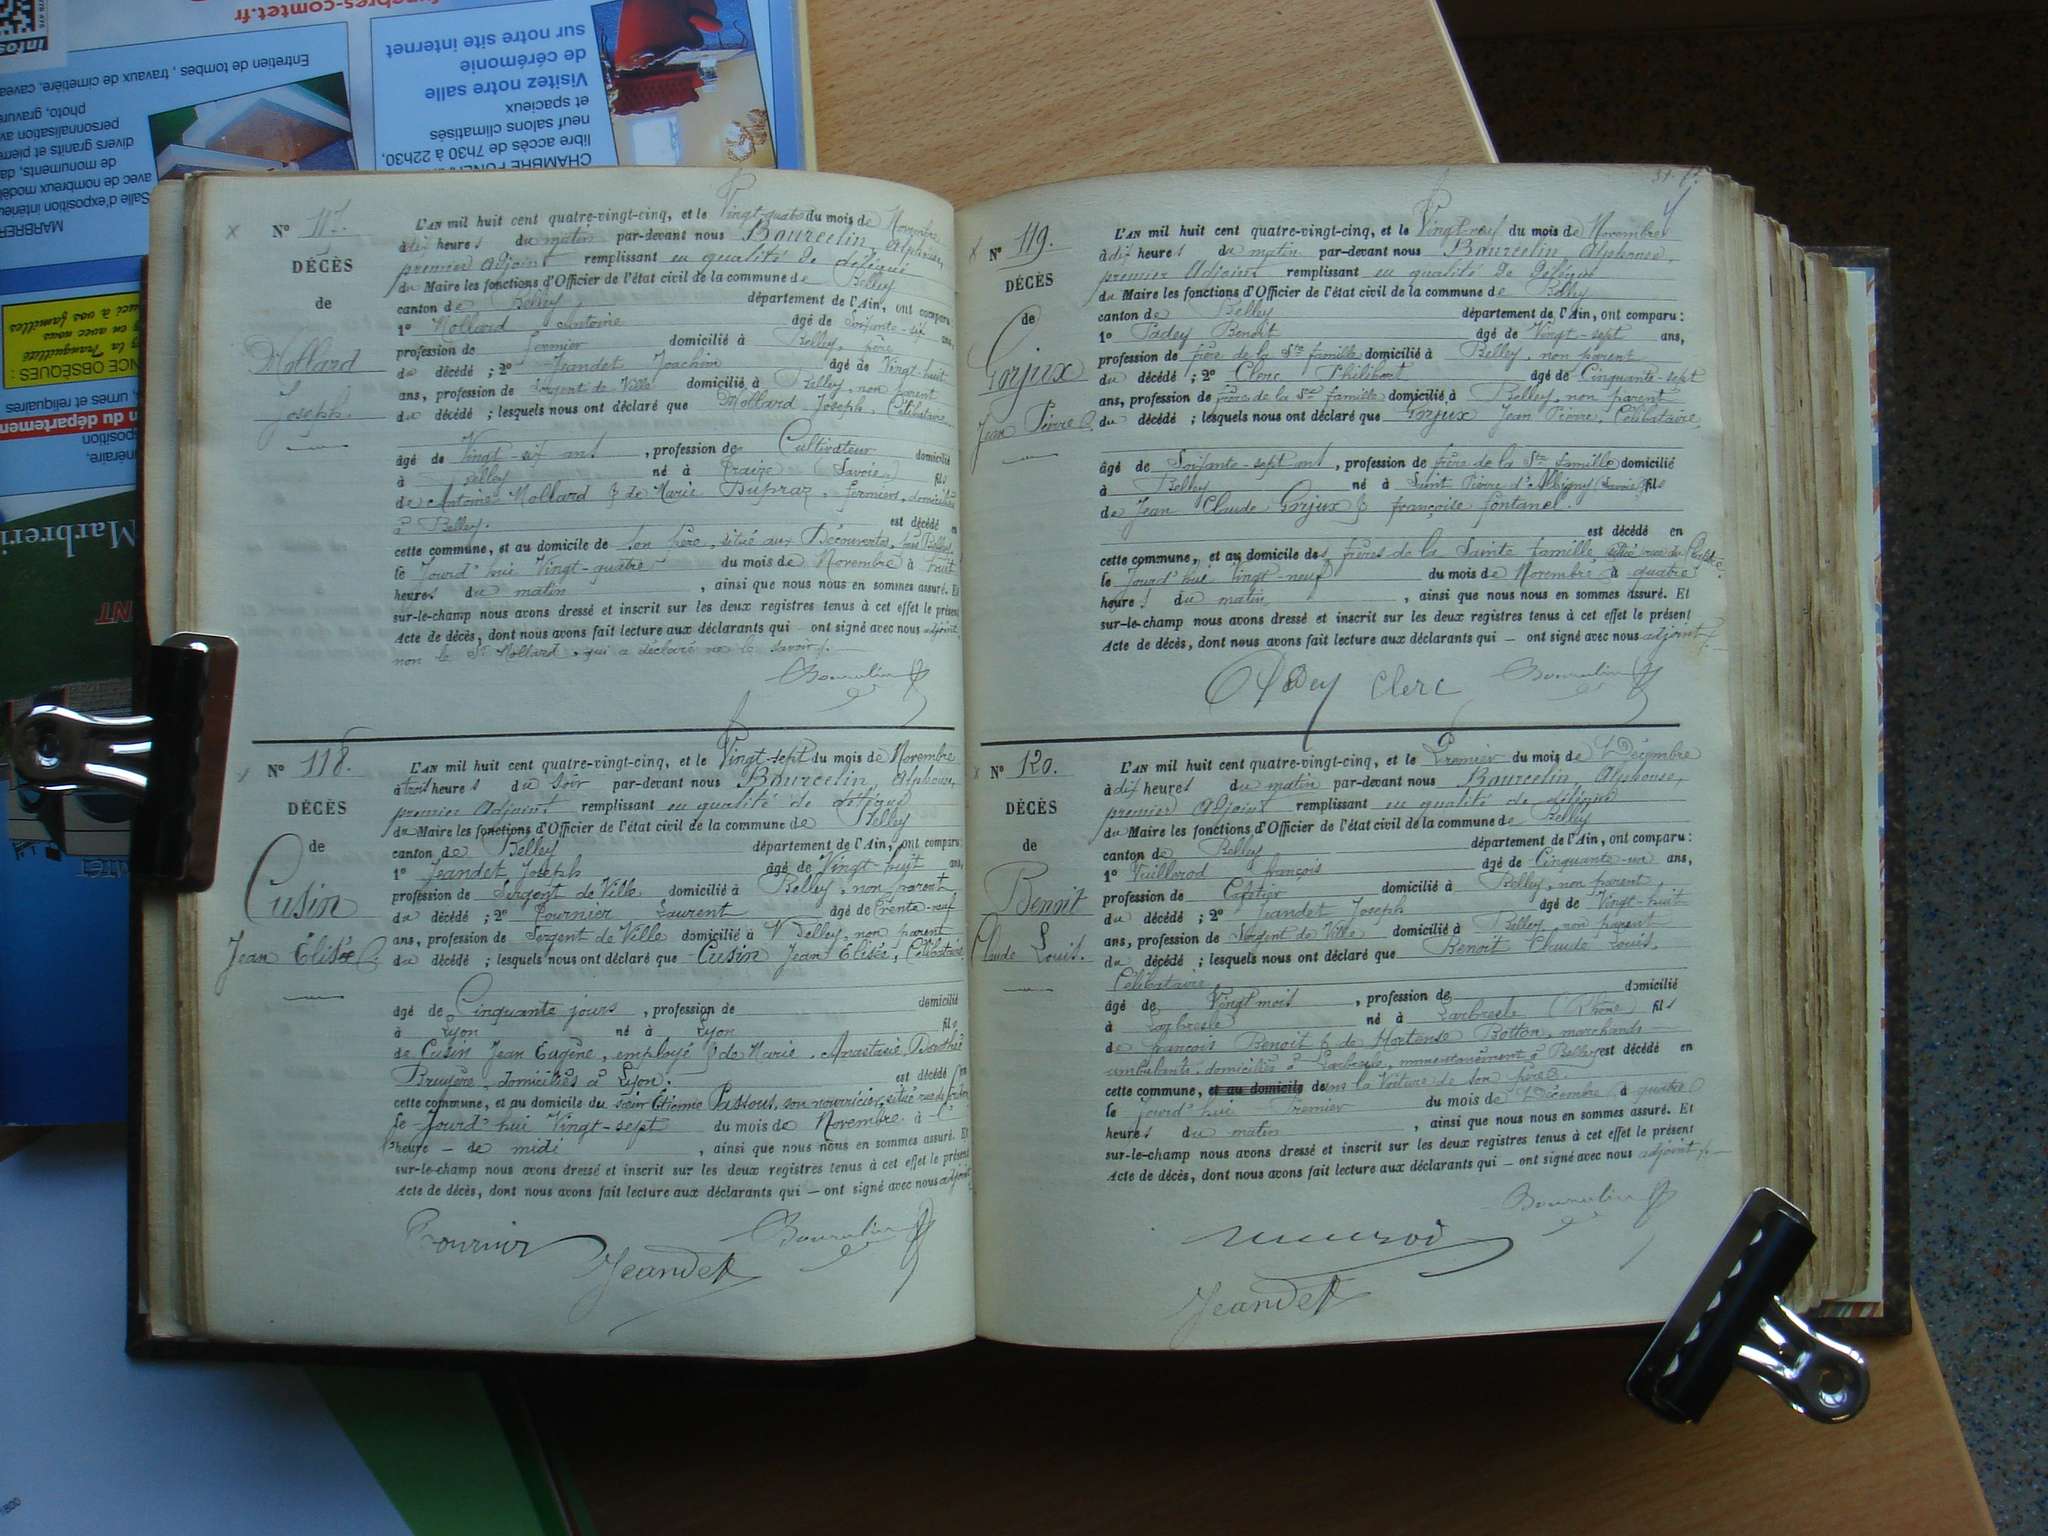 N° 117.
DÉCÈS
de
Mollard
Joseph.
L'AN mil huit cent quatre-vingt-cinq, et le Vingt-quatre du mois de Novembre
à dix heures du matin par-devant nous Bourcelin, Alphonse,
premier Adjoint remplissant en qualité de délégué
du Maire les fonctions d'Officier de l'état civil de la commune de Belley
canton de Belley, département de l'Ain, ont comparu
1° Mollard Antoine âgé de Soixante-six ans,
profession de fermier domicilié à Belley, père
du décédé ; 2° Jeandet Joachim âgé de Vingt-huit
ans, profession de Sergent de Ville domicilié à Belley, non parent
du décédé ; lesquels nous ont déclaré que Mollard Joseph, Célibataire
âgé de Vingt-six ans, profession de Cultivateur domicilié
à Belley né à Traize (Savoie) fils
de Antoine Mollard & de Marie Dupraz, fermiers, domiciliés
à Belley. est décédé en
cette commune, et au domicile de son père, situé aux Découvertes,
le Jourd'hui Vingt-quatre du mois de Novembre à huit
heures du matin, ainsi que nous nous en sommes assuré. Et
sur-le-champ nous avons dressé et inscrit sur les deux registres tenus à cet effet le présent
Acte de décès, dont nous avons fait lecture aux déclarants qui — ont signé avec nous adjoint,
non le Sr Mollard, qui a déclaré ne le savoir.
Bourcelin
N° 118.
DÉCÈS
de
Cusin
Jean Elisée
L'AN mil huit cent quatre-vingt-cinq, et le Vingt-sept du mois de Novembre
à trois heures du soir par-devant nous Bourcelin, Alphonse,
premier Adjoint remplissant en qualité de délégué
du Maire les fonctions d'Officier de l'état civil de la commune de Belley
canton de Belley département de l'Ain, ont comparu:
1° Jeandet Joseph âgé de Vingt-huit ans,
profession de Sergent de Ville domicilié à Belley, non parent
du décédé ; 2° Fournier Laurent âgé de trente-neuf
ans, profession de Sergent de Ville domicilié à Belley, non parent
du décédé ; lesquels nous ont déclaré que Cusin Jean Elisée, Célibataire
âgé de Cinquante jours, profession de domicilié
à Lyon né à Lyon fils
de Cusin Jean Eugène, employé & de Marie, Anastasie, Dorothée
Bruyère, domiciliés à Lyon. est décédé en
cette commune, et au domicile du sieur Etienne Passous, son nourricier, situé
le Jourd'hui Vingt-sept du mois de Novembre à l'
heure — de midi, ainsi que nous nous en sommes assuré. Et
sur-le-champ nous avons dressé et inscrit sur les deux registres tenus à cet effet le présent
Acte de décès, dont nous avons fait lecture aux déclarants qui — ont signé avec nous adjoint
Fournier Bourcelin
Jeandet
N° 119.
DÉCÈS
de
Gorjux
Jean Pierre.
L'AN mil huit cent quatre-vingt-cinq, et le Vingt-neuf du mois de Novembre
à dix heures du matin par-devant nous Bourcelin Alphonse,
premier Adjoint remplissant en qualité de Délégué
du Maire les fonctions d'Officier de l'état civil de la commune de Belley
canton de Belley département de l'Ain, ont comparu:
1° Padey Benoît âgé de Vingt-sept ans,
profession de frère de la Ste famille domicilié à Belley, non parent
du décédé ; 2° Clerc Philibert âgé de Cinquante-sept
ans, profession de frère de la Ste famille domicilié à Belley, non parent
du décédé ; lesquels nous ont déclaré que Gorjux Jean Pierre, Célibataire
âgé de Soixante-sept ans, profession de frère de la Ste famille domicilié
à Belley né à Saint Pierre d'Albigny (Savoie) fils
de Jean Claude Gorjux & françoise fontanel.
est décédé en
cette commune, et au domicile des frères de la Sainte famille
le Jourd'hui Vingt-neuf du mois de Novembre à quatre
heures du matin, ainsi que nous nous en sommes assuré. Et
sur-le-champ nous avons dressé et inscrit sur les deux registres tenus à cet effet le présent
Acte de décès, dont nous avons fait lecture aux déclarants qui — ont signé avec nous adjoint
Padey Clerc Bourcelin
N° 120.
DÉCÈS
de
Benoit
Claude Louis.
L'AN mil huit cent quatre-vingt-cinq, et le Premier du mois de Décembre
à dix heures du matin par-devant nous Bourcelin, Alphonse,
premier Adjoint remplissant en qualité de délégué
du Maire les fonctions d'Officier de l'état civil de la commune de Belley
canton de Belley département de l'Ain, ont comparu:
1° Vuillerod françois âgé de Cinquante-un ans,
profession de Cafetier domicilié à Belley, non parent
du décédé ; 2° Jeandet Joseph âgé de Vingt-huit
ans, profession de Sergent de Ville domicilié à Belley, non parent
du décédé ; lesquels nous ont déclaré que Benoit Claude Louis,
Célibataire,
âgé de Vingt mois, profession de domicilié
à Larbresle né à Larbresle (Rhône) fils
de françois Benoit & de Hortense Botton, marchands
ambulants, domiciliés à Larbresle, momentanément à Belley est décédé en
cette commune, et au domicile dans la Voiture de son père
le jourd'hui Premier du mois de Décembre à quatre
heures du matin, ainsi que nous nous en sommes assuré. Et
sur-le-champ nous avons dressé et inscrit sur les deux registres tenus à cet effet le présent
Acte de décès, dont nous avons fait lecture aux déclarants qui — ont signé avec nous adjoint
Bourcelin
Jeandet
funebres-comtet.fr
Visitez notre salle
de cérémonie
sur notre site internet
CHAMBRE FUNÉRAIRE
libre accès de 7h30 à 22h30,
neuf salons climatisés
et spacieux
Entretien de tombes, travaux de cimetière,
Salle d'exposition
avec de nombreux
de monuments,
divers granits et
personnalisation
photo,